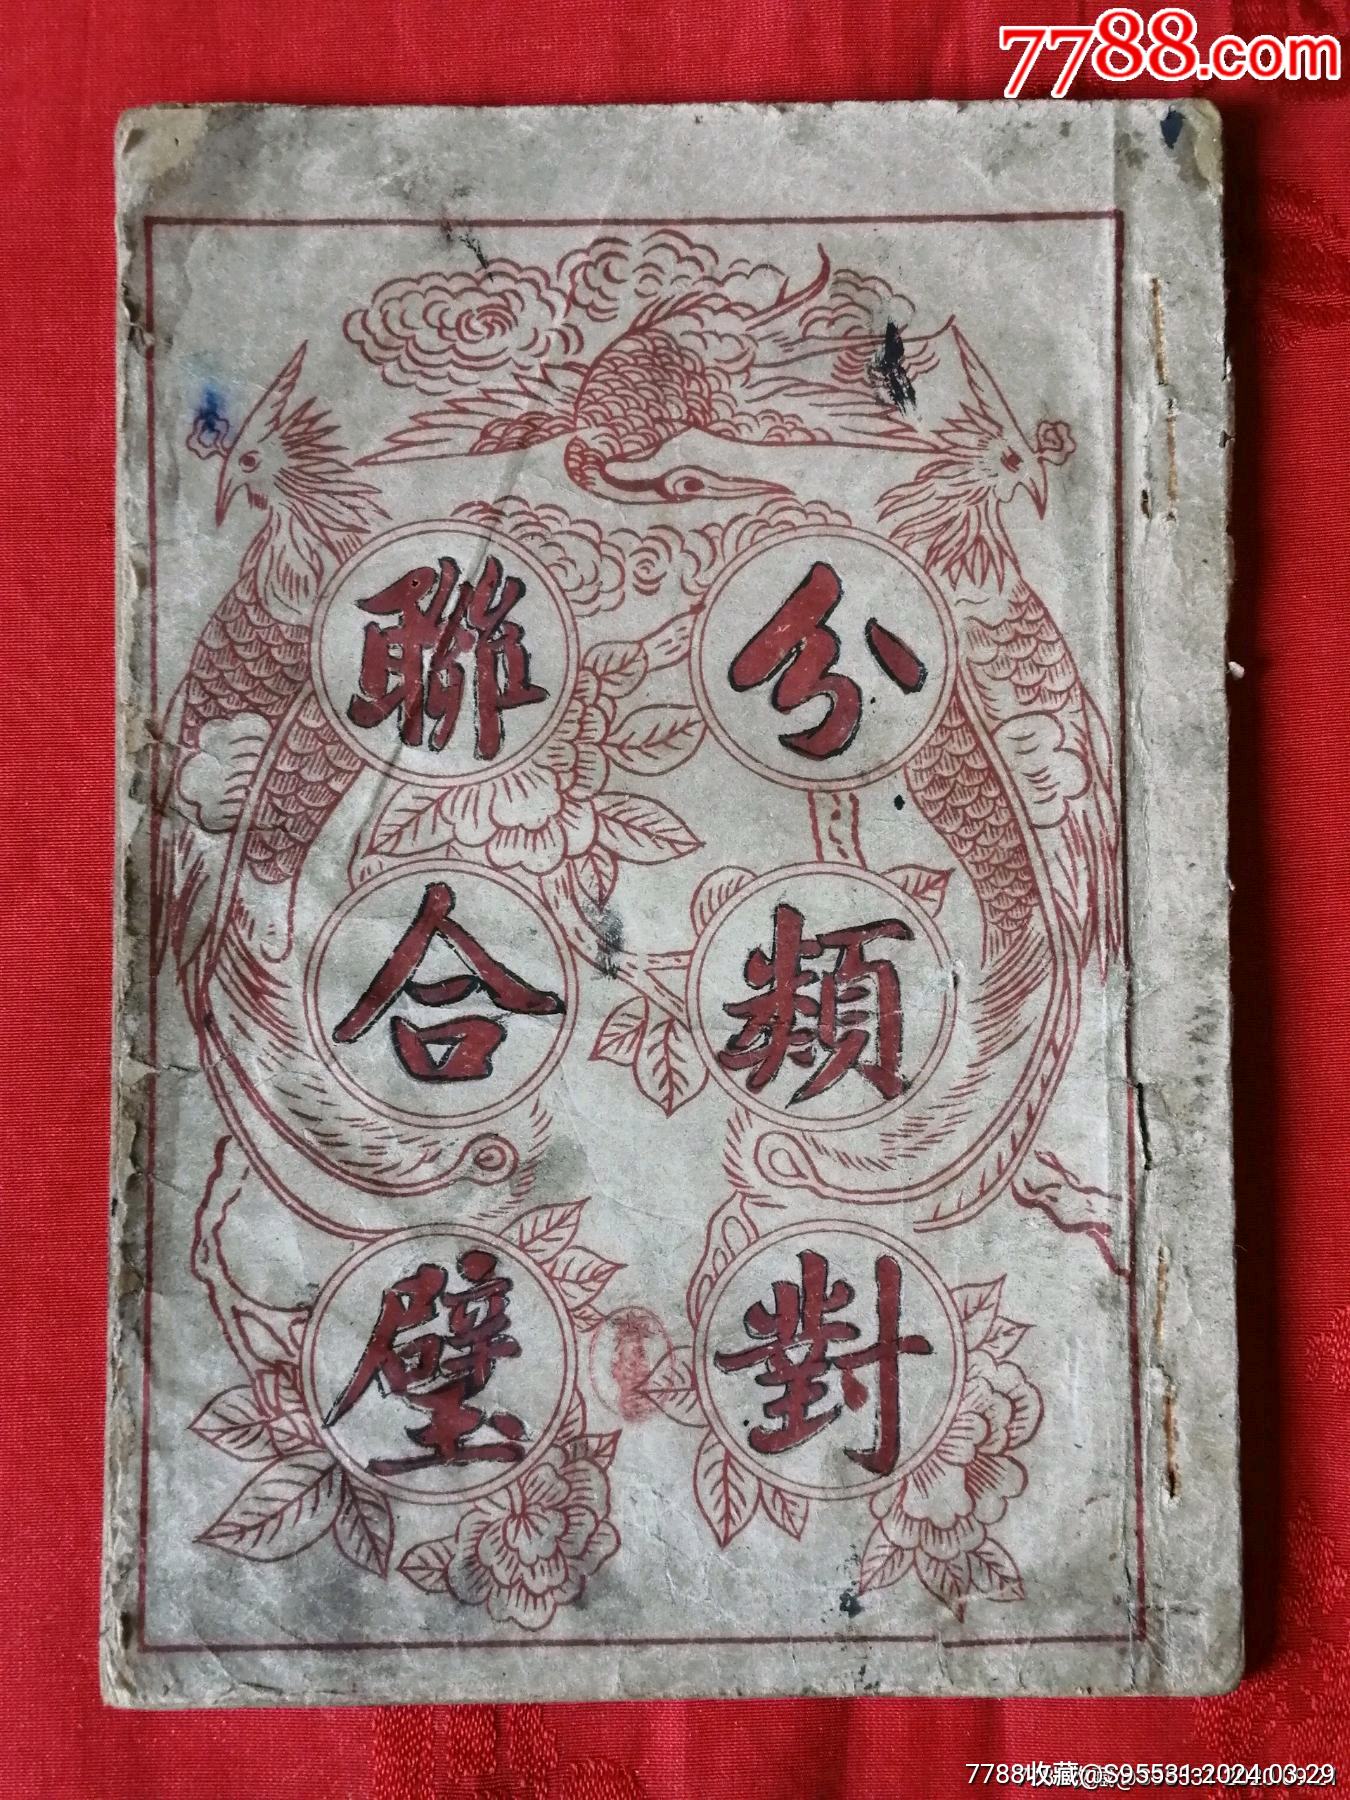 7788.com
分類對
聯合璧
7788收藏@S95531 2024.03.29